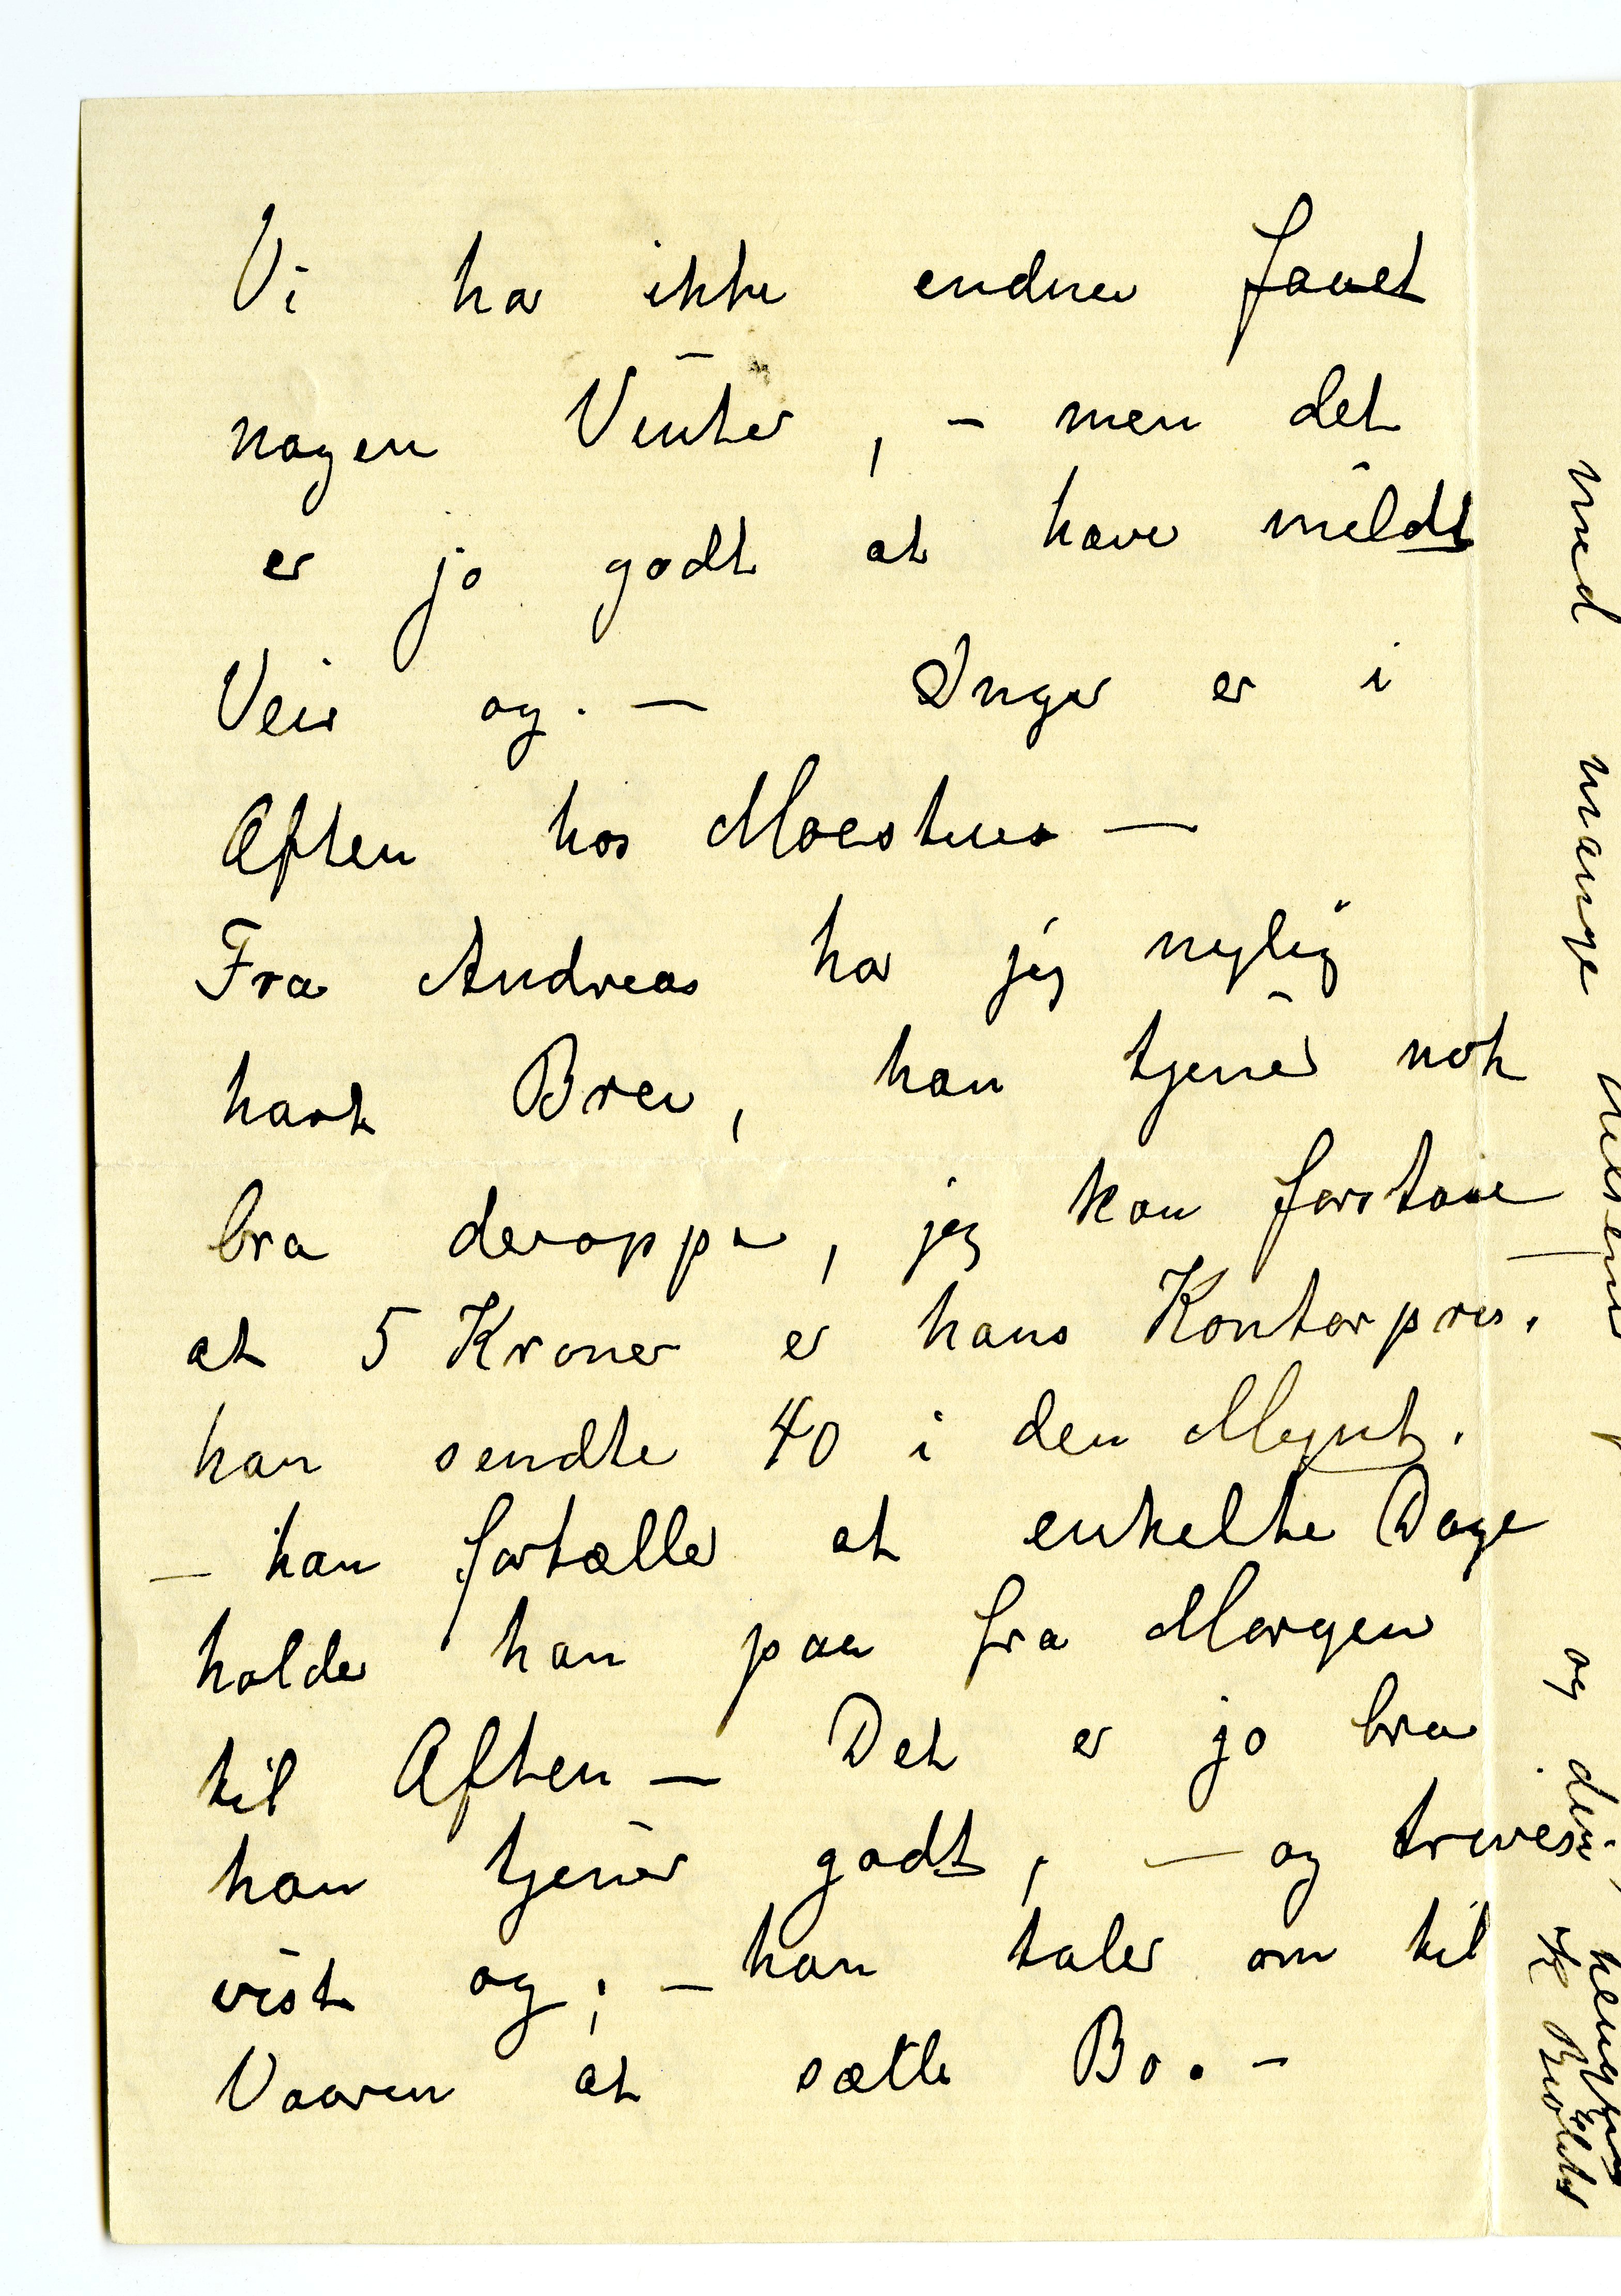 Vi har ikke endnu faaet
nogen Vinter, - men det
er jo godt at have mildt
Veir og. — Inger er i
Aften hos Moestues —
Fra Andreas har jeg nylig
havt Brev, han tjener nok
bra deroppe, jeg kan forstaae
at 5 Kroner er hans Kontorpris.
han sendte 40 i den Mynt.
— han fortæller at enkelte Dage
holder han paa fra Morgen
til Aften — Det er jo bra
han tjener godt, — og trives
vist og; — han taler om til
Vaaren at sætte Bo. —
med mange
og din